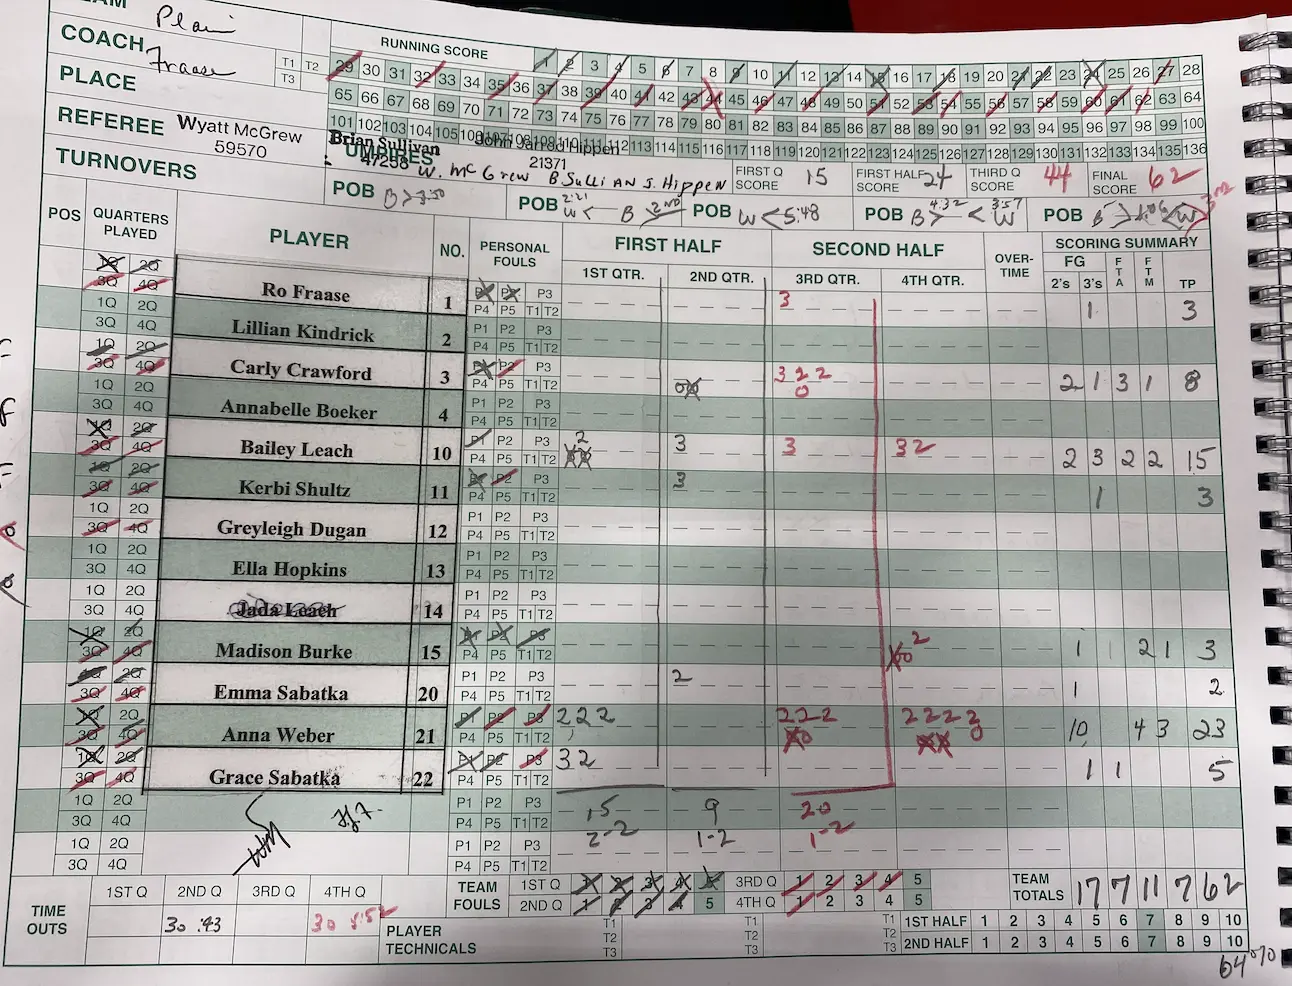 TEAM Plain
COACH Fraase
T1 T2
T3
PLACE
REFEREE Wyatt McGrew
59570
TURNOVERS
RUNNING SCORE
1 2 3 4 5 6 7 8 9 10 11 12 13 14 15 16 17 18 19 20 21 22 23 24 25 26 27 28
29 30 31 32 33 34 35 36 37 38 39 40 41 42 43 44 45 46 47 48 49 50 51 52 53 54 55 56 57 58 59 60 61 62 63 64
65 66 67 68 69 70 71 72 73 74 75 76 77 78 79 80 81 82 83 84 85 86 87 88 89 90 91 92 93 94 95 96 97 98 99 100
101 102 103 104 105 106 107 108 109 110 111 112 113 114 115 116 117 118 119 120 121 122 123 124 125 126 127 128 129 130 131 132 133 134 135 136
Brian Sullivan
47258
John Jarrod Hippen
21371
UMPIRES W. McGrew B Sullivan J. Hippen
FIRST Q SCORE 15
FIRST HALF SCORE 24
THIRD Q SCORE 44
FINAL SCORE 62
POB B > 3:50
POB 2:21 W < B > 2ND
POB W < 5:48
POB B > 4:32 < W 3:57
POB B > W > 3rd
POS
QUARTERS PLAYED
PLAYER
NO.
PERSONAL FOULS
FIRST HALF
1ST QTR.
2ND QTR.
SECOND HALF
3RD QTR.
4TH QTR.
OVER-TIME
SCORING SUMMARY
FG
2's 3's FTA FTM TP
1Q 2Q 3Q 4Q Ro Fraase 1 P1 P2 P3 P4 P5 T1 T2 3 1 3
1Q 2Q 3Q 4Q Lillian Kindrick 2 P1 P2 P3 P4 P5 T1 T2
1Q 2Q 3Q 4Q Carly Crawford 3 P1 P2 P3 P4 P5 T1 T2 0X 3 2 2 0 2 1 3 1 8
1Q 2Q 3Q 4Q Annabelle Boeker 4 P1 P2 P3 P4 P5 T1 T2
1Q 2Q 3Q 4Q Bailey Leach 10 P1 P2 P3 P4 P5 T1 T2 2 XX 3 3 3 2 2 3 2 2 15
1Q 2Q 3Q 4Q Kerbi Shultz 11 P1 P2 P3 P4 P5 T1 T2 3 1 3
1Q 2Q 3Q 4Q Greyleigh Dugan 12 P1 P2 P3 P4 P5 T1 T2
1Q 2Q 3Q 4Q Ella Hopkins 13 P1 P2 P3 P4 P5 T1 T2
1Q 2Q 3Q 4Q Jada Leach 14 P1 P2 P3 P4 P5 T1 T2
1Q 2Q 3Q 4Q Madison Burke 15 P1 P2 P3 P4 P5 T1 T2 X0 2 1 2 1 3
1Q 2Q 3Q 4Q Emma Sabatka 20 P1 P2 P3 P4 P5 T1 T2 2 1 2
1Q 2Q 3Q 4Q Anna Weber 21 P1 P2 P3 P4 P5 T1 T2 2 2 2 2 2 2 X0 2 2 2 2 XX 10 4 3 23
1Q 2Q 3Q 4Q Grace Sabatka 22 P1 P2 P3 P4 P5 T1 T2 3 2 1 1 5
1Q 2Q 3Q 4Q P1 P2 P3 P4 P5 T1 T2 15 9 20
1Q 2Q 3Q 4Q P1 P2 P3 P4 P5 T1 T2 2-2 1-2 1-2
TIME OUTS
1ST Q 2ND Q 3RD Q 4TH Q
30 .43
TEAM FOULS
1ST Q 1 2 3 4 5 3RD Q 1 2 3 4 5
2ND Q 1 2 3 4 5 4TH Q 1 2 3 4 5
PLAYER TECHNICALS
T1 T1 T1
T2 T2 T2
T3 T3 T3
TEAM TOTALS 17 7 11 7 62
1ST HALF 1 2 3 4 5 6 7 8 9 10
2ND HALF 1 2 3 4 5 6 7 8 9 10
64%